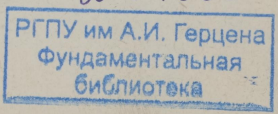 РГПУ им А.И. Герцена
Фундаментальная
библиотека